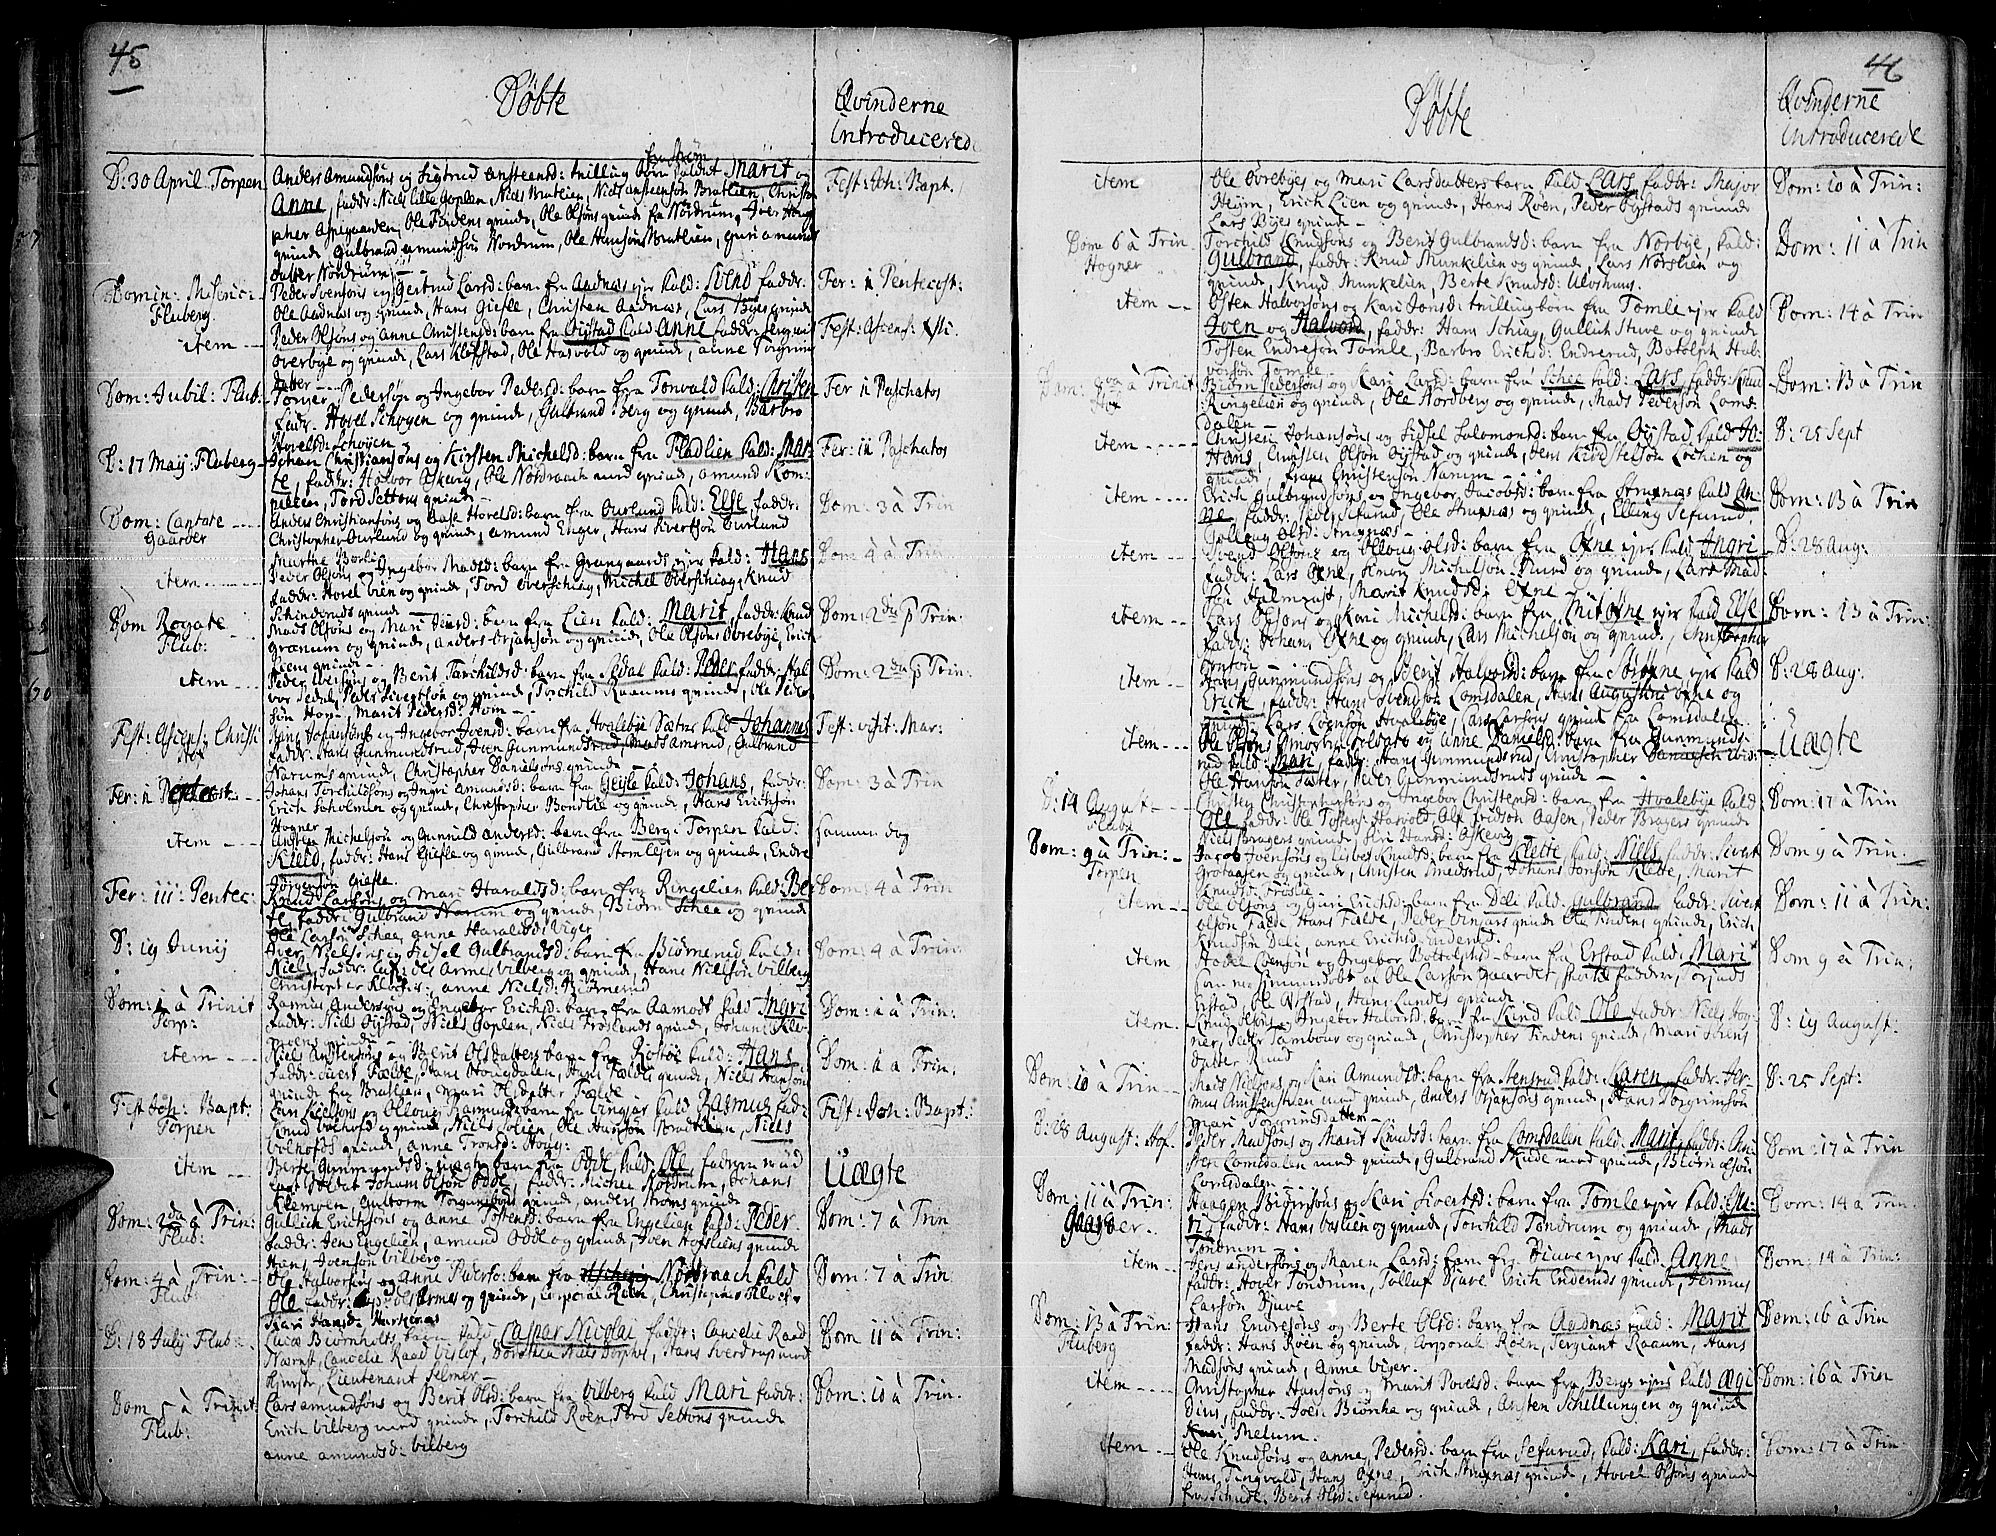 45
Døbte
Qvinderne
Introducerede
D: 30 April Torpen
Anders Amundsøns og Sigtrud Ansteensd: tvilling børn kaldet Marit og
Anne, faddr: Niels Lille Goplen, Niels Bratlien, Niels Ansteensøn Bratlien, Christo
pher Aspegaarden, Ole Findens qvinde, Ole Olsøns qvinde fra Nordrum, Iver Houg
qvinde Gulbrand Amundsøn Nordrum, Ole Hansøns Bratlien, Guri Amunds
datter Nordrum
Fest: Joh: Bapt.
Domin: Miseric:
Fluberg
Peder Svensøns og Gertrud Larsd: barn fra Aadnæs ejer kald: Svend faddr:
Ole Aadnæs og qvinde, Hans Giefle, Christen Aadnæs, Lars Byes qvinde
Fer: ii Pentecost:
item
Peder Olsøns og Anne Christensd: barn fra Øystad kald Anne faddr: Sergeant
Overbye og qvinde, Lars Kløfstad, Ole Hasvold og qvinde, Anne Torgrims
datter
Fest: Ascens: Xsti.
Dom: Jubil: Flub:
Torger Pedersøn og Ingebor Pedersd: barn fra Tonvald kald: Christen
faddr. Hovel Schøyen og qvinde, Gulbrand Berg og qvinde, Barbro
Hovelsd: Schøyen
Fer ii Paschatos
D: 17 Maij Fluberg
Johan Christiansøns og Kirsten Michelsd: barn fra Fladlien kald: Mar-
te, faddr: Halvor Askevig, Ole Nordraach med qvinde, Amund Kom-
pelien, Tord Settens qvinde
Fer: iii Paschatos
Dom: Cantate
Gaarder
Anders Christiansøns og Aase Hovelsd: barn fra Ourlund kald: Else, faddr:
Christopher Ourlund og qvinde, Amund Enger, Hans Sivertsøn Ourlund
Marthe Bonli
Dom: 3 à Trin
item
Peder Olsøns og Ingebor Madsd: barn fra Grøngaards ejer kald: Hans
faddr: Hovel Lien og qvinde, Tord Overschiag, Michel Overschiag, Knud
Schinderuds qvinde
Dom 4 à Trin
Dom Rogate
Flub:
Mads Olsøns og Mari Iversd: barn fra Lien kald: Marit, faddr: Knud
Granum og qvinde, Anders Ørjansøn og qvinde, Ole Olsøns Overbye, Erich
Liens qvinde
Dom: 2da p Trin.
item
Peder Iversøns og Berit Torchildsd: barn fra Sødal kald: Peder faddr: Hal-
vor Sødal, Peder Sivertsøn og qvinde, Torchild Raaums qvinde, Ole Peder-
søn Hom, Marit Pedersd: Hom
Dom: 2da p Trin.
Fest: Ascens: Christi
Hof
Hans Johansøns og Ingebor Joensd: barn fra Hvalebye Sætre kald Johannes
faddr: Hans Gunmundsrud, Joen Gunmundsrud, Mads Amsrud, Gulbrand
Narums qvinde, Christopher Danielsøns qvinde
Fest: visit: Mar:
Fer: ii Pentecost.
Johans Torchildsøns og Ingri Amundsd: barn fra Giefle kald: Johans, faddr:
Erich Scholmen og qvinde, Christopher Bondlie og qvinde, Hans Erichsøn
Hogner
Dom: 3 à Trin
item
Anders Michelsøn og Gunnild Andersd: barn fra Berg i Torpen kald:
Kield, faddr: Hans Giefle og qvinde, Gulbrand Stomlesen og qvinde, Endre
Jørgensøn Giefle.
samme dag
Fer: iii: Pentec:
Knud Larsøns og Mari Haralsd: barn fra Ringelien kald: Be-
te, faddr: Gulbrand Narum og qvinde, Biørn Schee og qvinde
Ole Larsøn Schee, Anne Haralsd: Viger
Dom: 4 à Trin
D: 19 Junij
Iver Nielsøns og Sidsel Gulbrandsd: barn fra Biørnerud kald:
Niels, faddr: Ole Annes Vilberg og qvinde, Hans Nielsøn Vilberg
Christopher Klocker, Anne Nielsd: Biørnerud
Dom: 4 à Trin:
Dom: 1 à Trinit
Torp:
Rasmus Andersøns og Ingebor Erichsd: barn fra Aamodt kald Ingri
faddr: Niels Øystad, Niels Goplen, Niels Frøslands qvinde, Johans Klev-
moens qvinde
Dom: 1 à Trin:
item
Niels Anstensøns og Berit Olsdatters barn fra Rostøe kald: Hans
faddr: Sivert Fælde, Hans Hougsdalen, Hans Fældes qvinde, Niels Hansøn
qvinde fra Bratlien, Mari Fælde
Dom: 1 à Trin:
Fest Joh: Bapt:
Torpen
Lars Kielsøns og Ollaug Rasmusd: barn fra Lingiar kald Rasmus fad-
Knud Volhofd og qvinde, Niels Solien, Ole Hansøn Bratlien, Niels
Volhofds qvinde Anne Tronsd: Houg:
Fest: Joh: Bapt:
item
Berte Gunmundsd: uægte barn fra Odde, kald: Ole, fadrene
Soldat Johans Olsøn Odde, faddr: Michel Nordrum, Johans
Klemoen, Gulborm Torgunsbond qvinde, Anders Moens qvinde
Uægte
Dom: 2da à Trin:
Flub:
Gullich Erichsøns og Anne Tostensd: barn fra Engelien kald: Peder
faddr: Jens Engelien, Amund Odde og qvinde, Joen Hofsliens qvinde
Hans Joensøn Vilberg
Dom: 7 à Trin
Dom: 4 à Trin:
Flub:
Ole Halvorsøns og Anne Pedersd: barn fra Nordraach kald
Ole faddr: Ole Armes og qvinde, Corporal Roen, Christopher Klocker
Kari Hansd: Haskenæs
Dom: 7 à Trin:
D: 18 July Flub:
Biørnholts barn kald Caspar Nicolai faddr: Cancelie Raad
Nærnst, Cancelie Raad Vislof, Dorothea Niels Dorph, Hans Sverdrup med
Hustru, Lieutenant Selmer
Dom 11 à Trin:
Dom 5 à Trinit
Flub:
Lars Amundsøns og Berit Olsd: barn fra Vilberg kald Mari faddr:
Erich Vilberg med qvinde, Torchild Roen, Tord Settens qvinde
Anne Amundsd: Vilberg
Dom: 10 à Trin.
46
Døbte
Qvinderne
Introducerede
item
Ole Overbyes og Mari Larsdatters barn kald Lars faddr: Major
Heym, Erich Lien og qvinde, Hans Roen, Peder Øystads qvinde
Lars Byes qvinde
Dom: 10 à Trin:
Dom 6 à Trin
Hogner
Torchild Knudsøns og Berit Gulbrandsd: barn fra Norbye, kald:
Gulbrand, faddr: Knud Munkelien og qvinde, Lars Norslien og
qvinde, Knud Munkelien, Berte Knudsd: Ulvshuus.
Dom: 11 à Trin
item
Osten Halvorsøns og Kari Jonsd: tvilling børn fra Tomle ejer kald
Iven og Halvord, faddr: Hans Schiag, Gullich Stuve og qvinde
Tosten Endresøn Tomle, Barbro Erichsd: Enderud, Botolph Hal-
vorsøn Tomle
Dom: 14 à Trin
Dom: 7da à Trinit
Hof
Biørn Pedersøns og Kari Larsd: barn fra Schee kald: Lars faddr: Knud
Ringelien og qvinde, Ole Nordberg og qvinde, Mads Pedersøn Loms-
dalen
Dom: 13 à Trin
item
Christen Johansøns og Sidsel Salomonsd: barn fra Øystad kald Jo-
Hans, Christen Olsøn Øystad og qvinde, Jens Kield Stelsøn Lochen og
qvinde, Frans Christensøn Narum
D: 25 Sept
item
Erich Gulbrandsøns og Ingebor Jacobsd: barn fra Strunæs kald An-
ne, faddr: Peder Sefurud, Ole Strunæs og qvinde, Elling Sefurud,
Gollaug Olsd: Strunæs
Dom: 13 à Trin
item
Svend Olsøns og Olloug Olsd: barn fra Oxne ejer kald Ingri
faddr: Lars Oxne, Simon Michelsøn Lund og qvinde, Lars Mad-
søn Halmrast, Marit Knudsd: Oxne
D: 28 Aug:
item
Lars Olsøns og Kari Michelsd: barn fra Mitoxne ejer kald Else
faddr: Johans Oxne og qvinde, Lars Michelsøn og qvinde, Christopher
Dom: 13 à Trin:
item
Hans Gunmundsøns og Berit Halvorsd: barn fra Stroxne ejer kald
Erich, faddr: Hans Svensøn Lomsdalen, Hans Augustad Oxne og
qvinde, Lars Evensøn Hvalebye, Lars Larsøns qvinde fra Lomsdalen
D: 28 Aug:
item
Ole Olsøns Soldats og Anne Danielsd: barn fra Gunmunds-
rud kald: Mari, faddr: Hans Gunmundsrud, Christopher
Ole Hansøn Sæter, Peder Gunmundsruds qvinde
Uægte
D: 14 August
Flub:
Christen Christophersøns og Ingebor Christensd: barn fra Hvalebye kald:
Ole faddr: Ole Tostens: Hasvold, Ole Evidsøn Aasen, Peder Bragers qvinde
Niels Bragers qvinde, Siri Hansd: Askevig
Dom: 17 à Trin
Dom: 9 à Trin:
Torpen
Jacob Joensøns og Lisbet Knudsd: barn fra Klette kald: Niels faddr: Sivert
Grotaasen og qvinde, Christen Smedsrud, Johans Jonsøn Klette, Marit
Knudsd: Frøslie
Dom 9 à Trin:
item
Ole Olsøns og Guri Erichsd: barn fra Deli kald: Gulbrand faddr: Sivert
Olsøn Fælde Hans Fælde, Peder Vingers qvinde Ole Findens qvinde, Erich
Knudsøn Deli, Anne Erichsd: Enderud.
Dom: 11 à Trin:
item
Hovel Evensøns og Ingebor Bottolphsd barn fra Erstad kald: Mari
som var hiemmedøbt af Ole Larsøn Gaardet, faddrer, Torsunds
Erstad, Ole Øststad, Hans Lundes qvinde
Dom 9 à Trin:
item
Knud Olsøns og Ingebor Halvorsd: barn fra Rind kald Ole faddr: Niels Hog-
ner, Peder Tambour og qvinde, Christopher Findens qvinde, Mari Ivers
datter Ruud
D: 19 August:
Dom: 10 à Trin
Mads Nielsøns og Kari Amundsd: barn fra Stensrud kald: Karen faddr: Her-
mus Anstenstuen med qvinde, Anders Ørjansøns qvinde, Hans Torgrimsøn
Mari Torgrimsdatter
D: 25 Sept:
D: 28 August: Hof.
Peder Madsøns og Marit Knudsd: barn fra Lomsdalen kald: Marit faddr: Chri-
sten Lomsdalen med qvinde, Gulbrand Skude med qvinde, Biørn Olsøn
Lomsdalen
Dom: 17 à Trin
Dom: 11 à Trin:
Gaarder.
Haagen Biørnsøns og Kari Sivertsd: barn fra Tomle ejer kald: Eli-
n, faddr: Hans Vaslien og qvinde, Torchild Tondrum og qvinde, Mads
Tondrum
Dom: 14 à Trin
item
Jens Andersøns og Maren Larsd: barn fra Biuve ejer kald Anne
faddr: Hover Tondrum, Tolluf Bjuve, Erich Enderuds qvinde, Hermus
Larsøn Bjuve
Dom: 14 à Trin
Dom: 13 à Trin
Fluberg
Hans Endresøns og Berte Olsd: barn fra Aadnæs kald: Marit
faddr: Hans Roen og qvinde, Corporal Roen, Sergiant Raaum, Hans
Madsøns qvinde, Anne Viger.
Dom: 16 à Trin
item
Christopher Hansøns og Marit Povelsd: barn fra Bergs ejer kald Ægi
dius, faddr: Joen Biørnke og qvinde, Ansten Schillungen og qvinde
Kari Melum.
Dom: 16 à Trin
item
Ole Knudsøns og Anne Pedersd: barn fra Sefurud, kald: Kari, faddr:
Hans Tingvald, Hans Oxne, Erich Strunæs qvinde, Hovel Olsøns qvinde
fra Schude: Berit Olsd: Sefurud.
Dom: 17 à Trin: